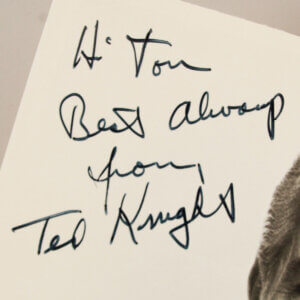 Hi Tom
Best Always
from,
Ted Knight